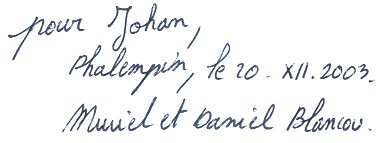 pour Johan,
Phalempin, le 20. XII. 2003.
Muriel et Daniel Blancou.